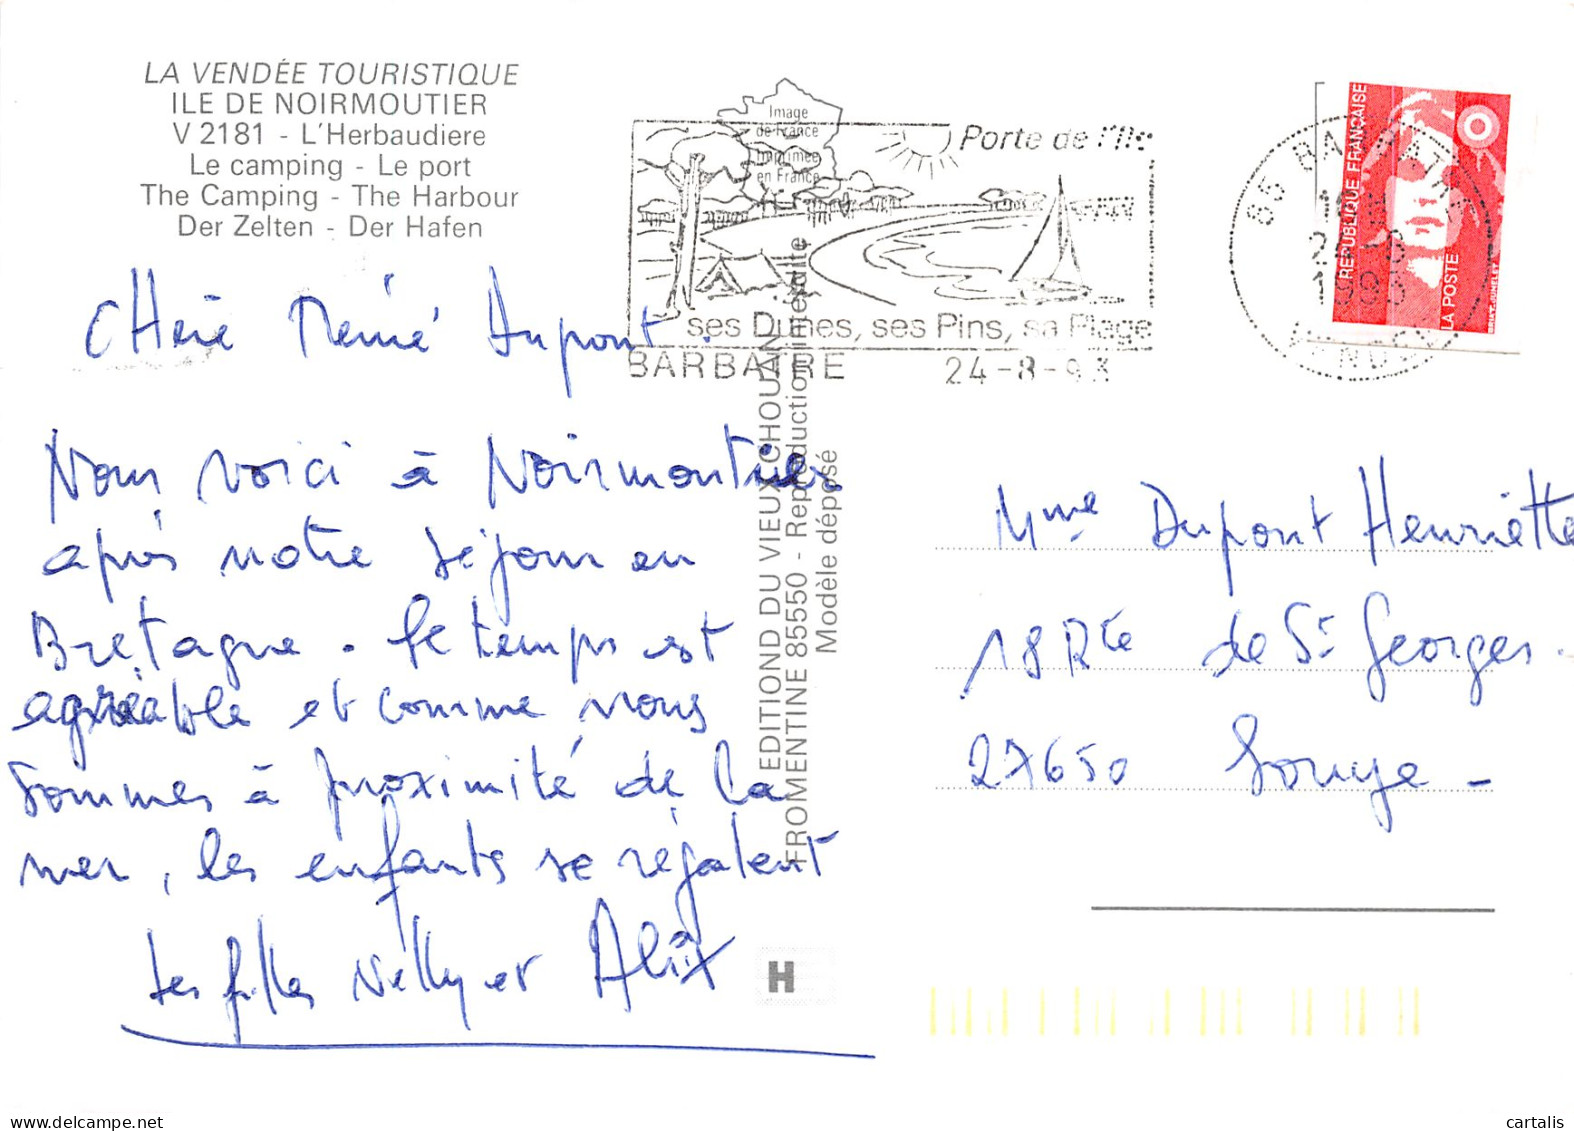 LA VENDÉE TOURISTIQUE
ILE DE NOIRMOUTIER
V 2181 - L'Herbaudiere
Le camping - Le port
The Camping - The Harbour
Der Zelten - Der Hafen
Image
de France
Imprimée
en France
Porte de l'Ile
ses Dunes, ses Pins, sa Plage
BARBATRE 24-8-93
85 BARBATRE
VENDEE
REPUBLIQUE FRANÇAISE
LA POSTE
CHère Mémé Dupont.
Nous voici à Noirmoutier
après notre séjour en
Bretagne. le temps est
agréable et comme nous
sommes à proximité de la
mer, les enfants se régalent
Les filles Nelly et Alix
EDITIOND DU VIEUX CHOUAN
FROMENTINE 85550 - Reproduction interdite
Modèle déposé
Mme Dupont Henriette
18 Rte de St Georges.
27650
H
www.delcampe.net
cartalis